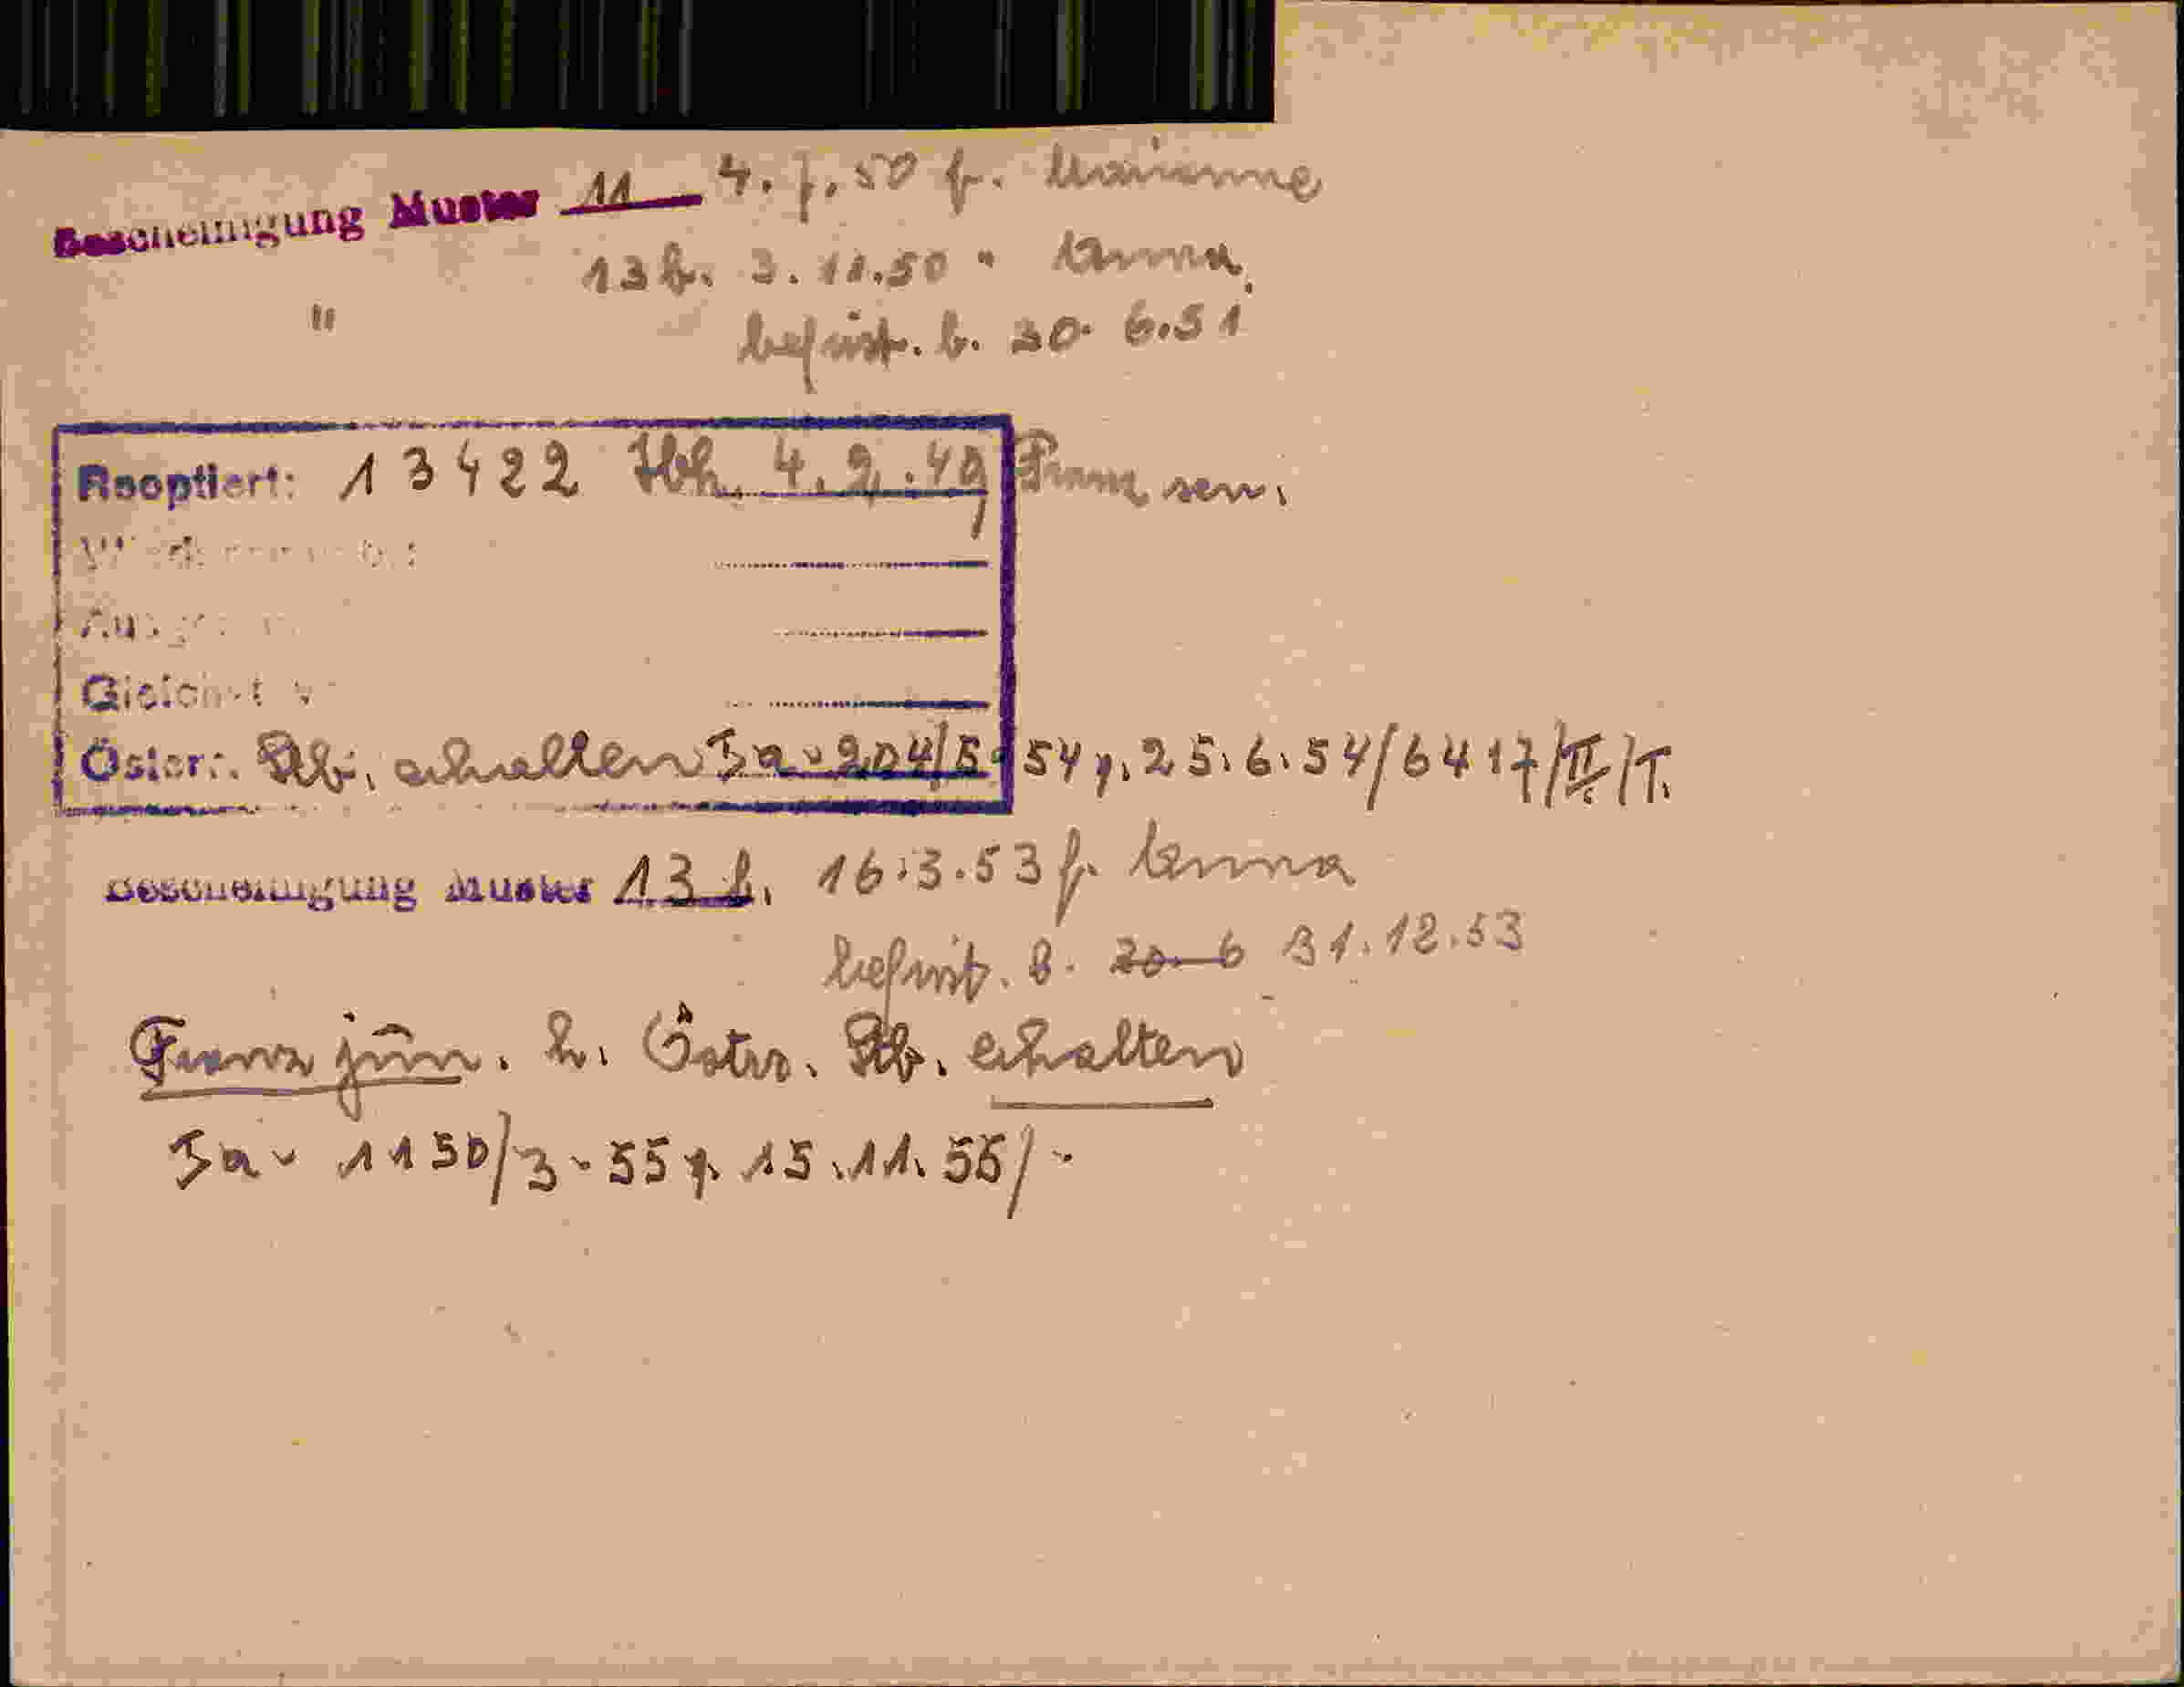 Bescheinigung Muster 11 4. 7. 50 f. Marianne
13 b. 3. 11. 50 " Anna,
" befrist. b. 30. 6. 51
Reoptiert: 13422 4. 2. 49 Franz sen.
Österr. Stb. erhalten Ia - 204/5 - 54 v. 25. 6. 54/6417/II/T.
Bescheinigung Muster 13 b. 16. 3. 53 f. Anna
befrist. b. 30. 6 31. 12. 53
Franz jun. h. Östr. Stb. erhalten
Ia - 1150/3 - 55 v. 15. 11. 55/-